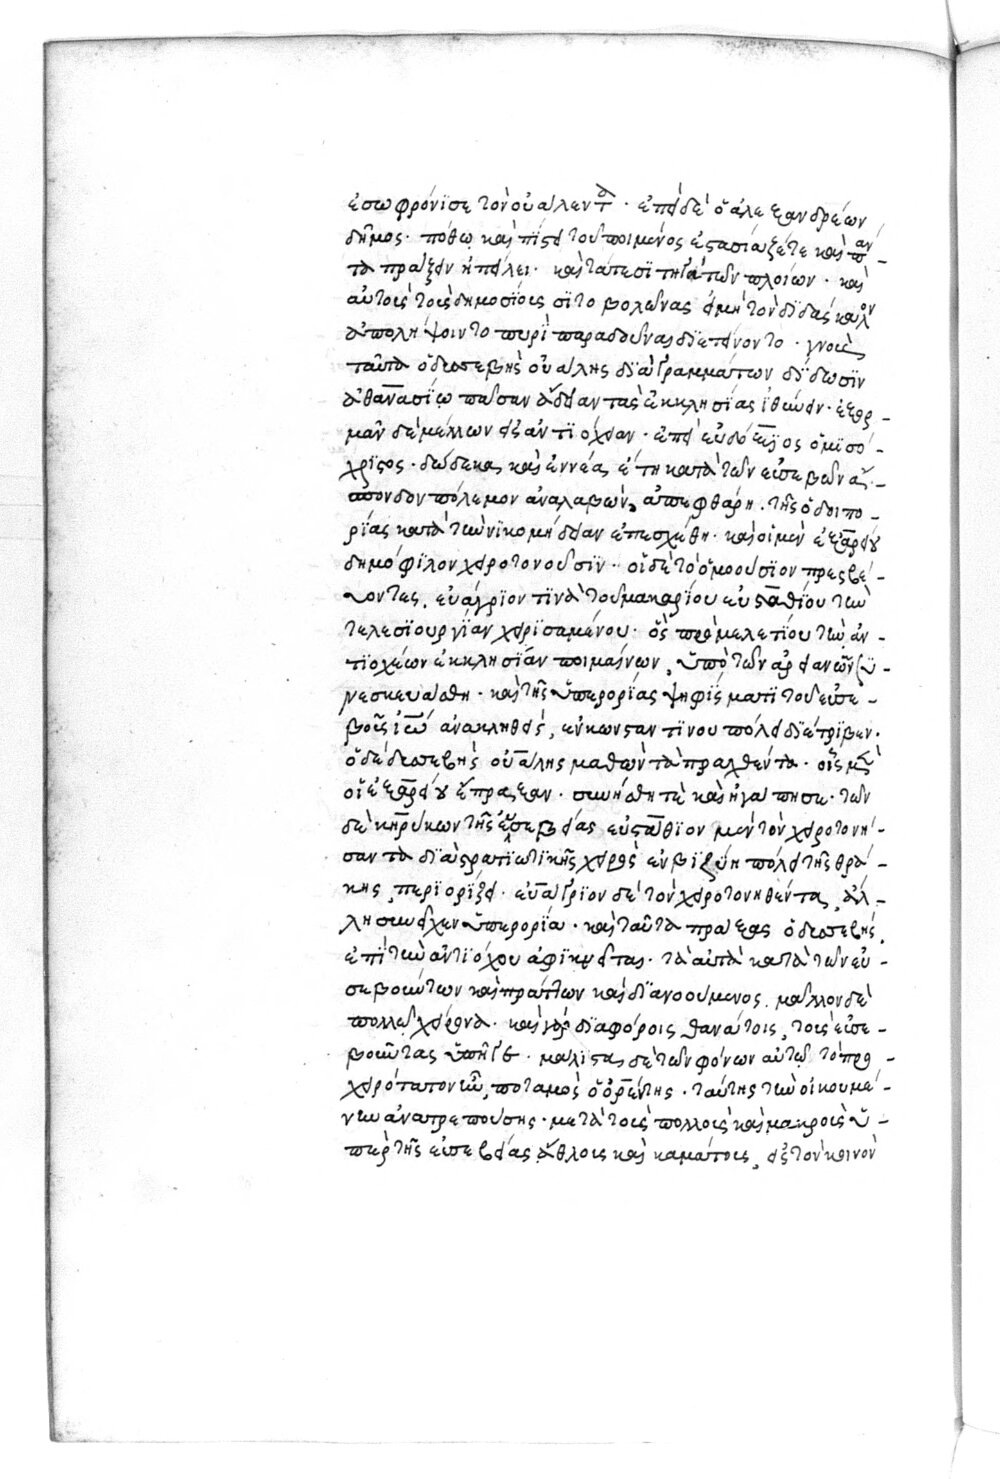 ἐσωφρόνισε τὸν οὐάλεντα· ἐπεὶ δὲ ὁ ἀλεξανδρέων
δῆμος· πόθω καὶ πίστει τοῦ ποιμένος ἐστασίαζέ τε καὶ πᾶν
τὸ πράξειν ἠπείλει· καὶ τὰ ἐπὶ σιτηγὰ τῶν πλοίων· καὶ
αὐτοῖς τοῖς δημοσίοις σιτοβολῶνας εἰ μὴ τὸν διδάσκαλον
ἀπολήψοιντο πυρὶ παραδοῦναι διετείνοντο· γνοὺς
ταῦτα ὁ δυσσεβὴς οὐάλης διὰ γραμμάτων δίδωσιν
ἀθανασίω πᾶσαν ἄδειαν τὰς ἐκκλησίας ἰθύνειν· ἐξορ-
μᾶν δὲ μέλλων εἰς ἀντιόχειαν· ἐπεὶ εὐδόξιος ὁ μισό-
χριστος· δώδεκα καὶ ἐννέα ἔτη κατὰ τῶν εὐσεβῶν ἄ-
σπονδον πόλεμον ἀναλαβὼν, ἀπεφθάρη· τῆς ὁδοιπο-
ρίας κατὰ τὴν νικομήδειαν ἐπεσχέθη· καὶ οἱ μὲν ἐξ ἀρείου
δημόφιλον χειροτονοῦσιν· οἱ δὲ τὸ ὁμοούσιον πρεσβεύ-
οντες, εὐάγριον τινὰ τοῦ μακαρίου εὐσταθίου τὴν
τελεσιουργίαν χαρισαμένου· ὃς πρὸ μελετίου τὴν ἀν-
τιοχέων ἐκκλησίαν ποιμαίνων, ὑπὸ τῶν ἀρειανῶν συ-
νεσκευάσθη· καὶ τῆς ὑπερορίας ψηφίσματι τοῦ εὐσε-
βοῦς ἰωβιανοῦ ἀνακληθεὶς, ἐν κωνσταντίνου πόλει διέτριβεν·
ὁ δὲ δυσσεβὴς οὐάλης μαθὼν τὰ πραχθέντα· οἷς μὲν
οἱ ἐξ ἀρείου ἔπραξαν· συνήσθη τὲ καὶ ἠγάπησε· τῶν
δὲ κηρύκων τῆς εὐσεβείας εὐστάθιον μὲν τὸν χειροτονή-
σαντα διὰ στρατιωτικῆς χειρὸς ἐν βιζύη πόλει τῆς θρά-
κης, περιορίζει· εὐάγριον δὲ τὸν χειροτονηθέντα, ἄλ-
λη συνεῖχεν ὑπερορία· καὶ ταῦτα πράξας ὁ δυσσεβὴς,
ἐπὶ τὴν ἀντιόχου ἀφικνεῖται· τὰ αὐτὰ κατὰ τῶν εὐ-
σεβούντων καὶ πράττων καὶ διανοούμενος, μᾶλλον δὲ
πολλῶ χείρονα· καὶ γὰρ διαφόροις θανάτοις, τοὺς εὐσε-
βοῦντας ὑπῆγε· μάλιστα δὲ τῶν φόνων αὐτῶ τὸ πρό-
χειρότατον ἦν, ποταμὸς ὁ ὀρέντης· ταύτης τὴν οἰκουμέ-
νην ἀνατρεπούσης· μετὰ τοὺς πολλοὺς καὶ μακροὺς ὑ-
πὲρ τῆς εὐσεβείας ἄθλους καὶ καμάτους, εἰς τὸν κοινὸν